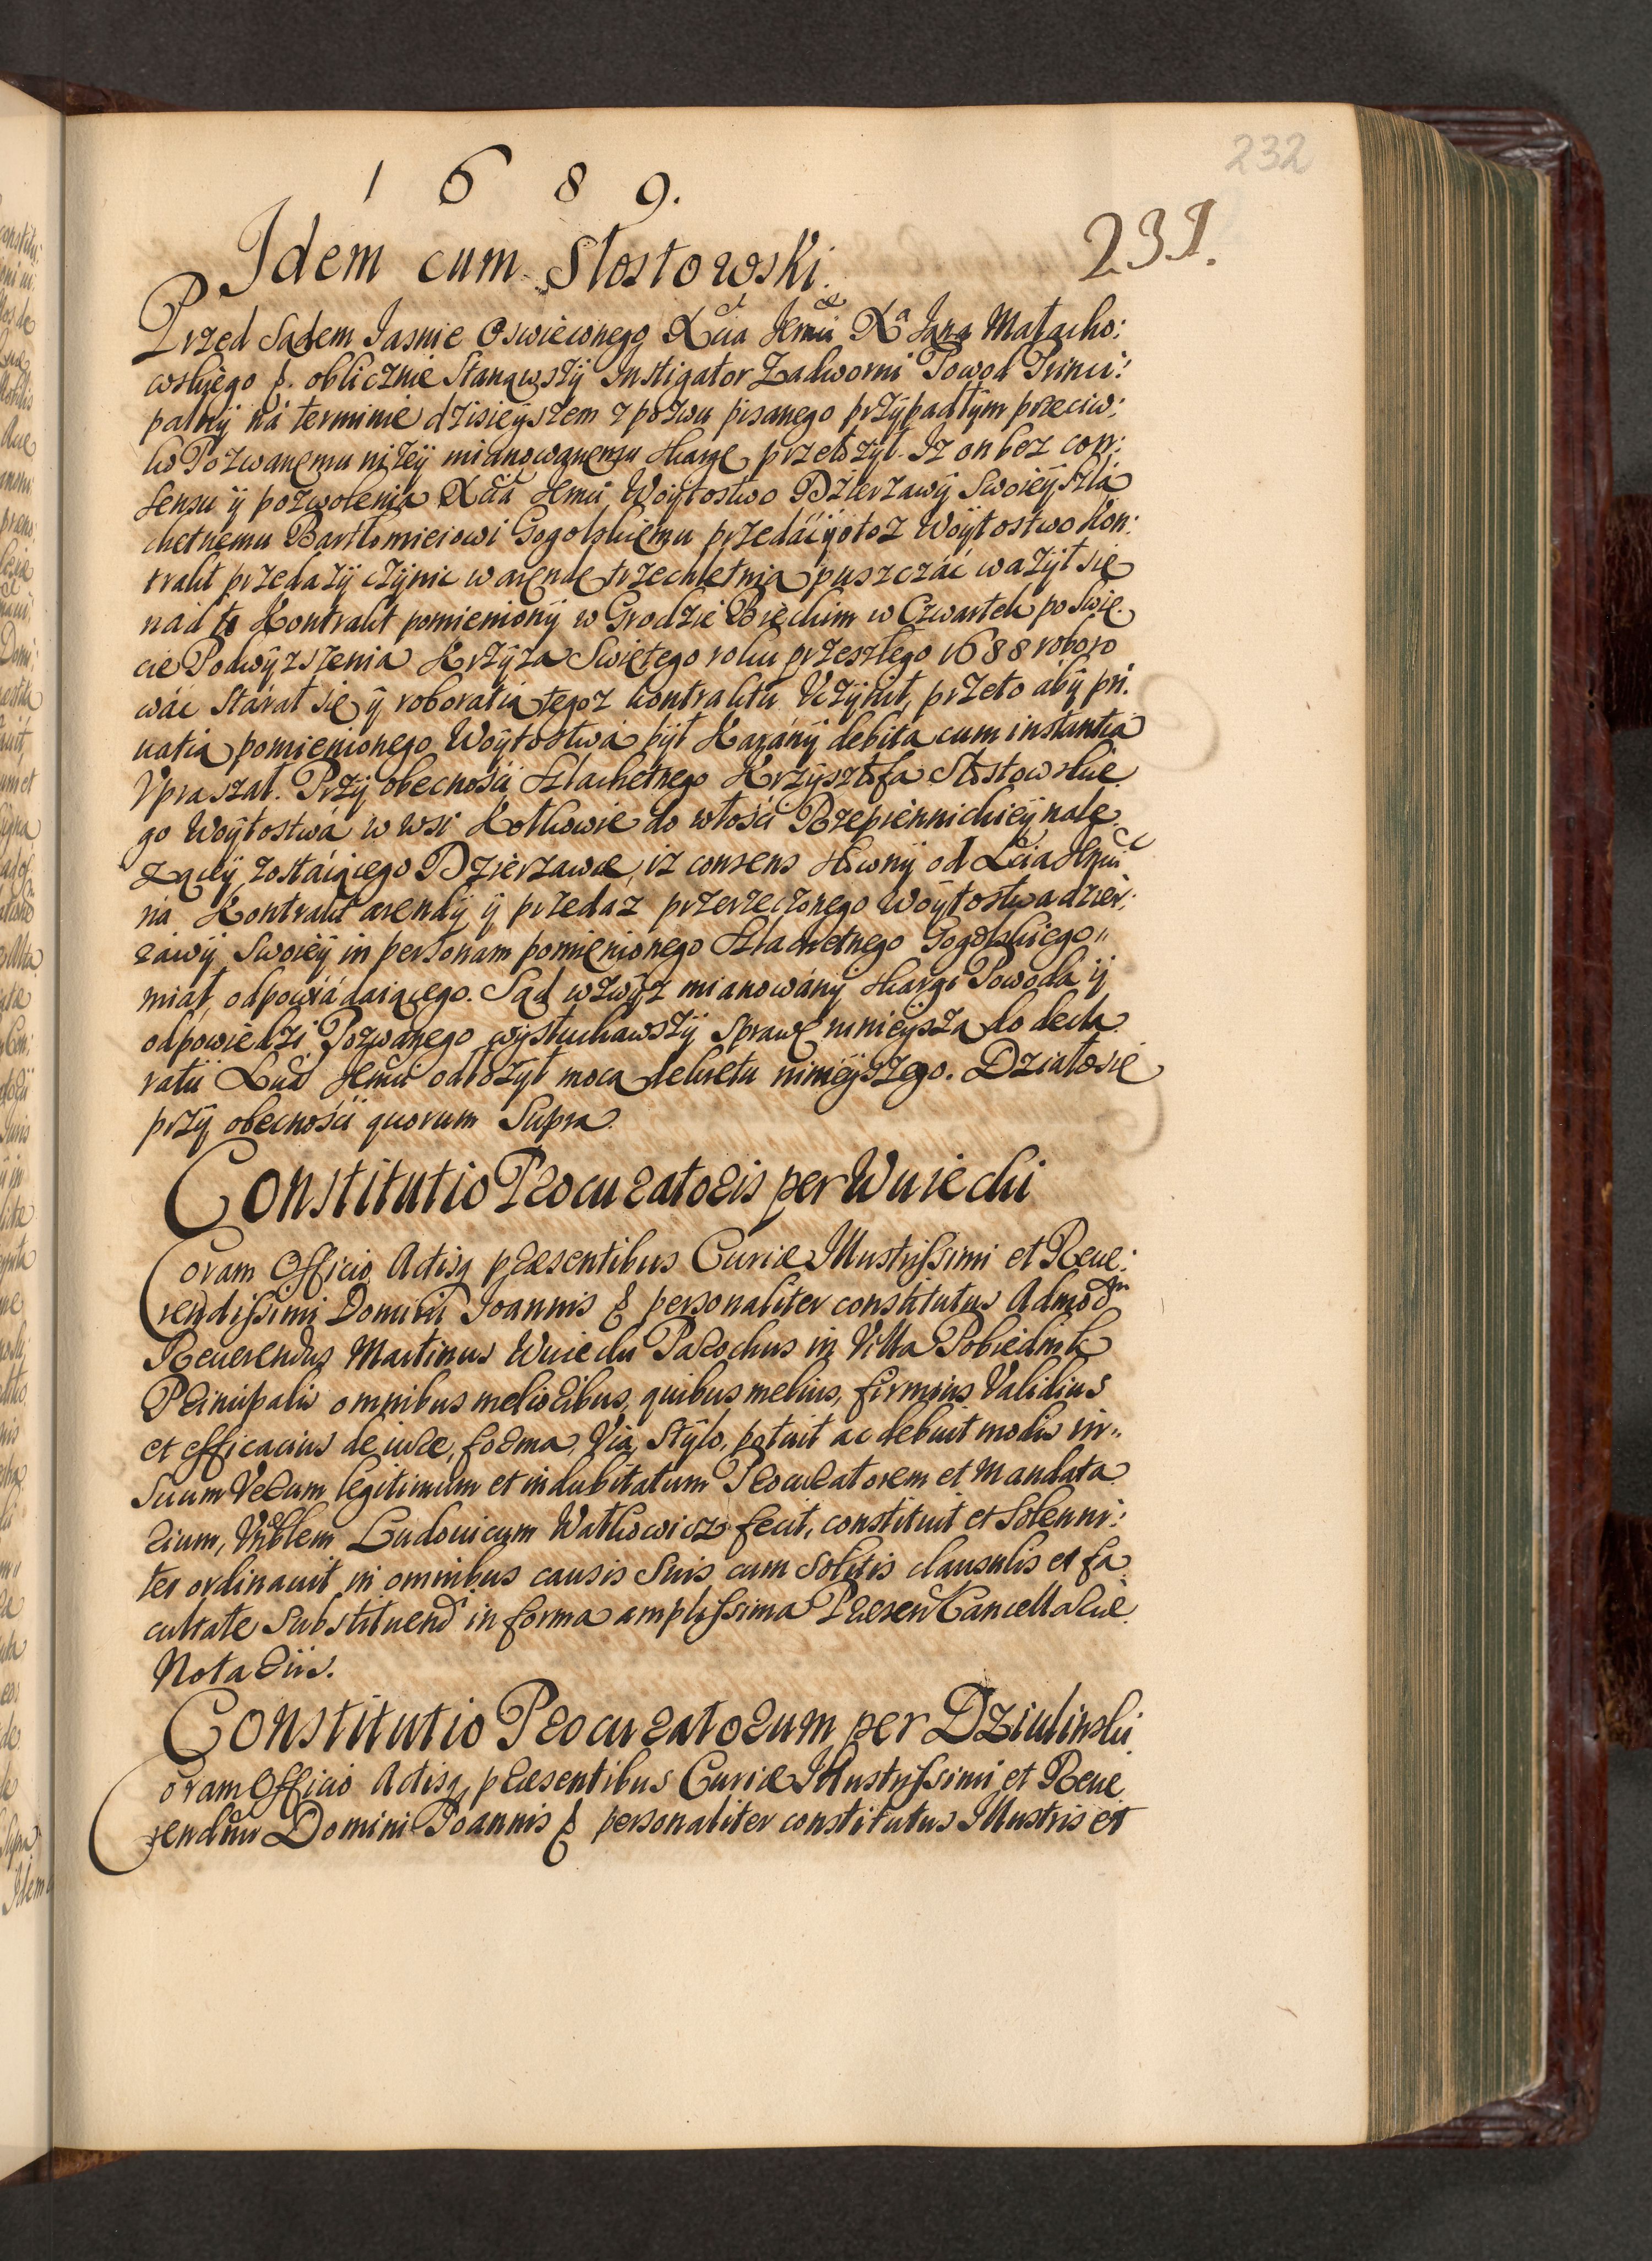 232
1 6 8 9.
231.
Idem cum Słostowski.
Przed Sądem Jasnie Oswieconego Xcia Jeᵒmci Xᵃ Jana Małacho:
wskiego &. oblicznie Stanąwszÿ Instigator Zadworni Powod Princi:
palnÿ ná terminie dzisieÿszem z pozwu pisanego przÿpadłÿm przeciw:
ko Pozwanemu niżeÿ mianowanemu skargę przełożÿł. Iż on bez con:
sensu ÿ pozwolenia Xcia Jeᵒmci Woÿtostwo Dzierzawÿ Swoieÿ Szla
chetnemu Bartłomieiowi Gogolskiemu przedáć ÿ otoż Woÿtostwo Kon:
trakt przedażÿ czÿnic w arendę trzechletnią puszczáć ważÿł się
nád to Kontrakt pomienionÿ w Grodzie Bieckim w Czwartek po Swię.
cie Podwÿzszenia Krzÿża Swiętego roku przeszłego 1688 roboro
wáć Stárał się ÿ roboratią tegoż kontraktu Vczÿnił, przeto abÿ pri:
uatią pomienionego Woÿtostwá bÿł Karánÿ debita cum instantia
Vpraszał. Przÿ obecnośći Szlachetnego Krzÿsztofa Słostowskie
go Woÿtostwá w wsi Kotkowie do włośći Brzepiennickieÿ nale.
żąceÿ zostáiącego Dzierzawce, iż consens słownÿ od Xcia Jeᵒmci
ná Kontrakt arendÿ ÿ przedaż przerzeczonego Woÿtostwa dzier:
żáwÿ Swoieÿ in personam pomienionego Szlachetnego Gogolskiego
miał, odpowiádaiącego. Sąd wzwÿż mianowánÿ skargi Powoda ÿ
odpowiedzi Pozwanego wÿsłuchawszÿ Sprawę ninieÿszą do decla
ratii Xcia Jeᵒmci odłożÿł mocą dekretu ninieÿszego. Działo się
przÿ obecnośći quorum Supra.
Constitutio Procuratoris per Wuiecki
Coram Officio Actisq præsentibus Curiæ Illustrissimi et Reue:
rendissimi Domini Joannis & personaliter constitutus Admodᵐ
Reuerendus Martinus Wuiecki Parochus in Villa Pobiednik
Principalis omnibus melioribus, quibus melius, firmius Validius
et efficacius de iure, forma, Via, Stÿlo, potuit ac debuit modis in
Suum Verum legitimum et indubitatum Procuratorem et Mandata
rium, Nblem Ludouicum Watkowicz fecit, constituit et Solenni:
ter ordinauit in omnibus causis Suis cum Solitis clausulis et fa
cultate Substituend in forma amplissima Præsen Cancellariæ
Notariis.
Constitutio Procuratorum per Dziulinski
Coram Officio Actisq præsentibus Curiæ Illustrissimi et Reue
rendmi Domini Joannis & personaliter constitutus Illustris et